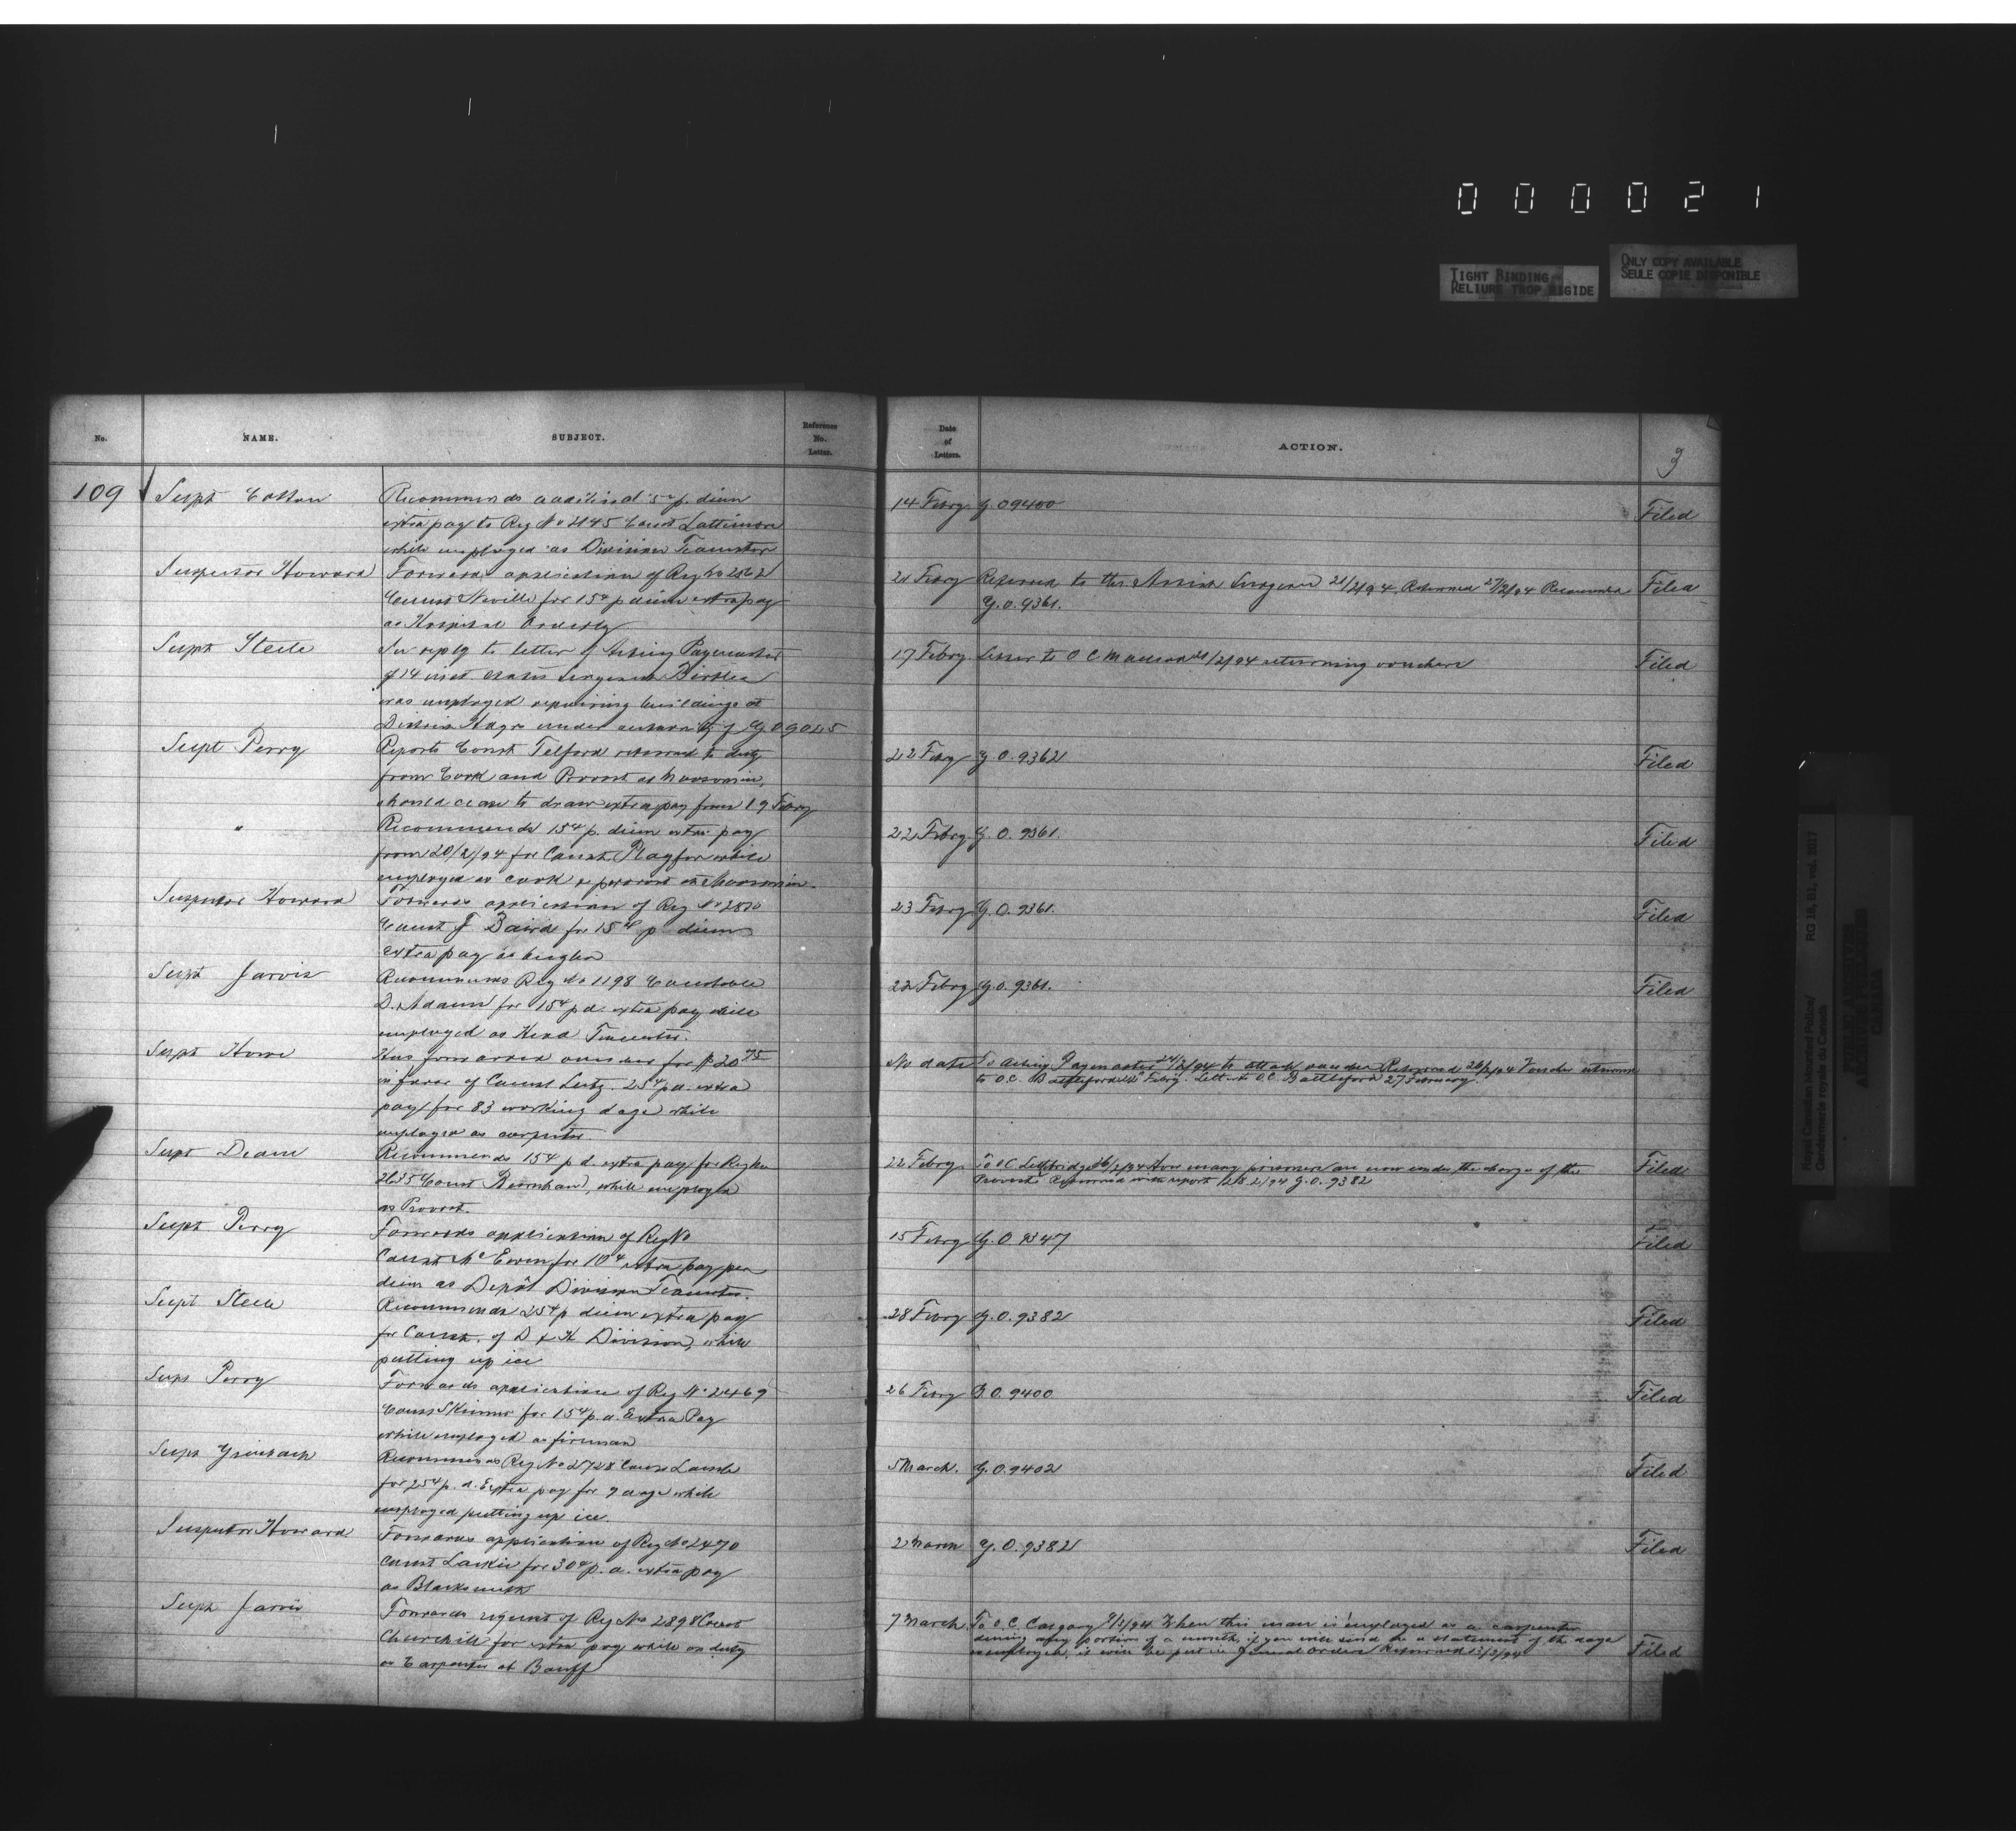 000021
TIGHT BINDING
RELIURE TROP RIGIDE
ONLY COPY AVAILABLE
SEULE COPIE DISPONIBLE
No. NAME. SUBJECT. Reference No. Letter. Date of Letters. ACTION. 3
109 Supt Cotton Recommends additional 5c p. diem 14 Febry G.O 9400 Filed
extra pay to Reg No 2145 Const Lattimore
while employed as Division Teamster
Inspector Howard Forwards application of Reg No 2862 21 Febry Referred to the Assist Surgeon 21/2/94 Returned 27/2/94 Recommended Filed
Const Neville for 15c p diem extra pay G.O. 9361.
as Hospital Orderly
Supt Steele In reply to letter of Acting Paymaster 17 Febry Letter to O C Macleod /2/94 returning vouchers Filed
of 14 inst states Sergeant
was employed repairing buildings at
District Hdqrs under authority of G.O 9045
Supt Perry Reports Const Telford returned to duty 22 Febry G O. 9362 Filed
from Cook and Provost at Moosomin,
should cease to draw extra pay from 19 Febry
" Recommends 15c p. diem extra pay 22 Febry G. O. 9361. Filed
from 20/2/94 for Const Playfor while
employed as cook & provost at Moosomin.
Inspector Howard Forwards application of Reg No 2870 23 Febry G.O. 9361. Filed
Const J Baird for 15c p diem
extra pay as bugler
Supt Jarvis Recommends Reg No 1198 Constable 22 Febry G.O. 9361. Filed
D. Adams for 15c p d. extra pay while
employed as Head Teamster.
Supt Howe Has forwarded voucher for $20 75 No date To Acting Paymaster 24/2/94 to attach voucher Returned 26/2/94 Voucher returned
in favor of Const Lutz. 25c p d. extra to O.C. Battleford Febry. Letter to O.C. Battleford 27 February.
pay for 83 working days while
employed as carpenter.
Supt Deane Recommends 15c p d. extra pay for Reg No 22 Febry To O C Lethbridge 26/2/94 How many prisoners are now under the charge of the Filed
2635 Const Burnham, while employed Provost. Returned with report 28.2/94 G.O. 9382
as Provost.
Supt Perry Forwards application of Reg No 15 Febry G.O. 9347 Filed
Const McEwen for 10c extra pay per
diem as Depôt Division Teamster.
Supt Steele Recommends 25c p diem extra pay 28 Febry G.O. 9382 Filed
for Const. of D & H Division, while
putting up ice
Supt Perry Forwards application of Reg No 2469 26 Febry G.O. 9400 Filed
Const Skinner for 15c p.d. Extra Pay
while employed as fireman
Supt Griesbach Recommends Reg No 2728 Const 5 March. G.O. 9402 Filed
for 25c p. d. Extra pay for 9 days while
employed putting up ice.
Inspector Howard Forwards application of Reg No 2470 2 March G.O. 9382 Filed
Const Larkin for 30c p. d. extra pay
as Blacksmith
Supt Jarvis Forwards request of Reg No 2898 Const 7 March To O.C. Calgary /3/94 When this man is employed as a carpenter
Churchill for extra pay while on duty during any portion of a month, if you will send in a statement of the days
as Carpenter at Banff employed, it will be put in General Orders Returned /3/94 Filed
Royal Canadian Mounted Police/
Gendarmerie royale du Canada
RG 18, B1, vol. 2017
PUBLIC ARCHIVES
ARCHIVES PUBLIQUES
CANADA